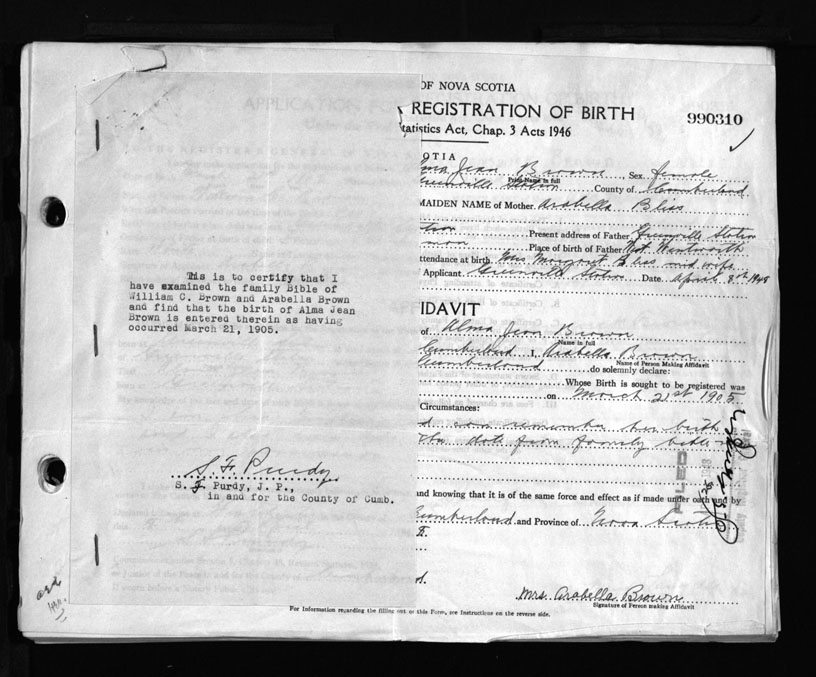 This is to certify that I
have examined the family Bible of
William C. Brown and Arabella Brown
and find that the birth of Alma Jean
Brown is entered therein as having
occurred March 21, 1905.
S. F. Purdy
S. F Purdy, J. P.,
in and for the County of Cumb.
OF NOVA SCOTIA
REGISTRATION OF BIRTH
tatistics Act, Chap. 3 Acts 1946
990310
OTIA
ma Jean Brown, Sex female
Print Name in full
Greenville Station County of Cumberland
MAIDEN NAME of Mother Arabella Bliss
tion Present address of Father Greenville Station
Place of birth of Father West Wentworth
ttendance at birth Mrs Margaret Bliss mid wife
f Applicant Greenville Station Date April 8th 1948
IDAVIT
of Alma Jean Brown
Name in full
Cumberland I, Arabella Brown
Name of Person Making Affidavit
Cumberland do solemnly declare:
Whose Birth is sought to be registered was
on March 21st 1905
Circumstances:
d can remember her birth
date from family bible
FILED
and knowing that it is of the same force and effect as if made under oath and by
Cumberland and Province of Nova Scotia
Mrs. Arabella Brown
Signature of Person making Affidavit
For Information regarding the filling out of this Form, see Instructions on the reverse side.